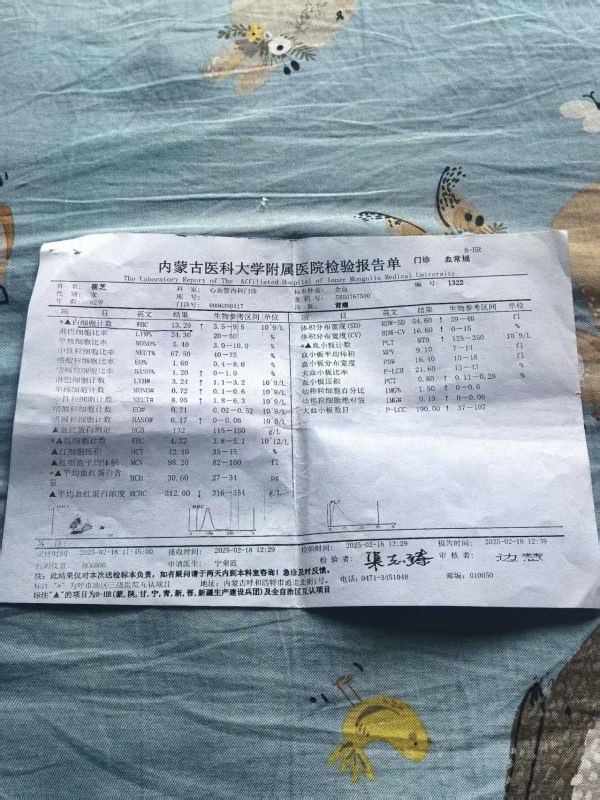 8-HR
内蒙古医科大学附属医院检验报告单 门诊 血常规
The Laboratory Report of The Affiliated Hospital of Inner Mongolia Medical University
姓 名: 崔芝 科 室: 心血管内科门诊 标本种类: 全血 编 号: 1322
性 别: 女 床 号: 条码号: 5850767500
年 龄: 62岁 门诊号: 0006390117 诊 断: 胃痛
项 目 英文 结果 生物参考区间 单位
*▲白细胞计数 WBC 13.29 ↑ 3.5-9.5 10^9/L
淋巴细胞比率 LYM% 24.30 20-50 %
单核细胞比率 MONO% 5.40 3.0-10.0 %
中性粒细胞比率 NEUT% 67.50 40-75 %
嗜酸粒细胞比率 EO% 1.60 0.4-8.0 %
嗜碱粒细胞比率 BASO% 1.20 ↑ 0-1.0 %
淋巴细胞计数 LYM# 3.24 ↑ 1.1-3.2 10^9/L
单核细胞计数 MONO# 0.72 ↑ 0.1-0.6 10^9/L
中性粒细胞计数 NEUT# 8.95 ↑ 1.8-6.3 10^9/L
嗜酸粒细胞计数 EO# 0.21 0.02-0.52 10^9/L
嗜碱粒细胞计数 BASO# 0.17 ↑ 0-0.06 10^9/L
▲血红蛋白测定 HGB 132 115-150 g/L
*▲红细胞计数 RBC 4.32 3.8-5.1 10^12/L
▲红细胞压积 HCT 42.40 35-45 %
▲红细胞平均体积 MCV 98.20 82-100 fl
*▲平均血红蛋白含量 MCH 30.60 27-34 pg
▲平均血红蛋白浓度 MCHC 312.00 ↓ 316-354 g/L
项 目 英文 结果 生物参考区间 单位
体积分布宽度(SD) RDW-SD 54.60 ↑ 39-46 fl
体积分布宽度(CV) RDW-CV 16.60 ↑ 0-15 %
*▲血小板计数 PLT 879 ↑ 125-350 10^9/L
血小板平均体积 MPV 9.10 7-14 fl
血小板分布宽度 PDW 16.40 10-18 fl
大血小板比率 P-LCR 21.60 13-43 %
血小板压积 PCT 0.80 ↑ 0.11-0.28 %
幼稚粒细胞百分比 IMG% 1.50 ↑ 0-0.6 %
幼稚粒细胞绝对值 IMG# 0.19 ↑ 0-0.06 10^9/L
大血小板数目 P-LCC 190.00 ↑ 37-107
RBC
PLT
备 注:
采样时间: 2025-02-18 11:45:00 接收时间: 2025-02-18 12:29 检验时间: 2025-02-18 12:29 报告时间: 2025-02-18 12:38
检测仪器: BC6800 申请医生: 宁荣霞 检验者: 审核者: 边慧
注: 此结果仅对本次送检标本负责, 如有疑问请于两天内到本科室咨询! 急诊及时反馈。
标注"*"为呼市地区三级医院互认项目 地址: 内蒙古呼和浩特市通道北街1号。 电话: 0471-3451048 邮编: 010050
标注"▲"的项目为8-HR(蒙,陕,甘,宁,青,新,晋,新疆生产建设兵团)及全自治区互认项目